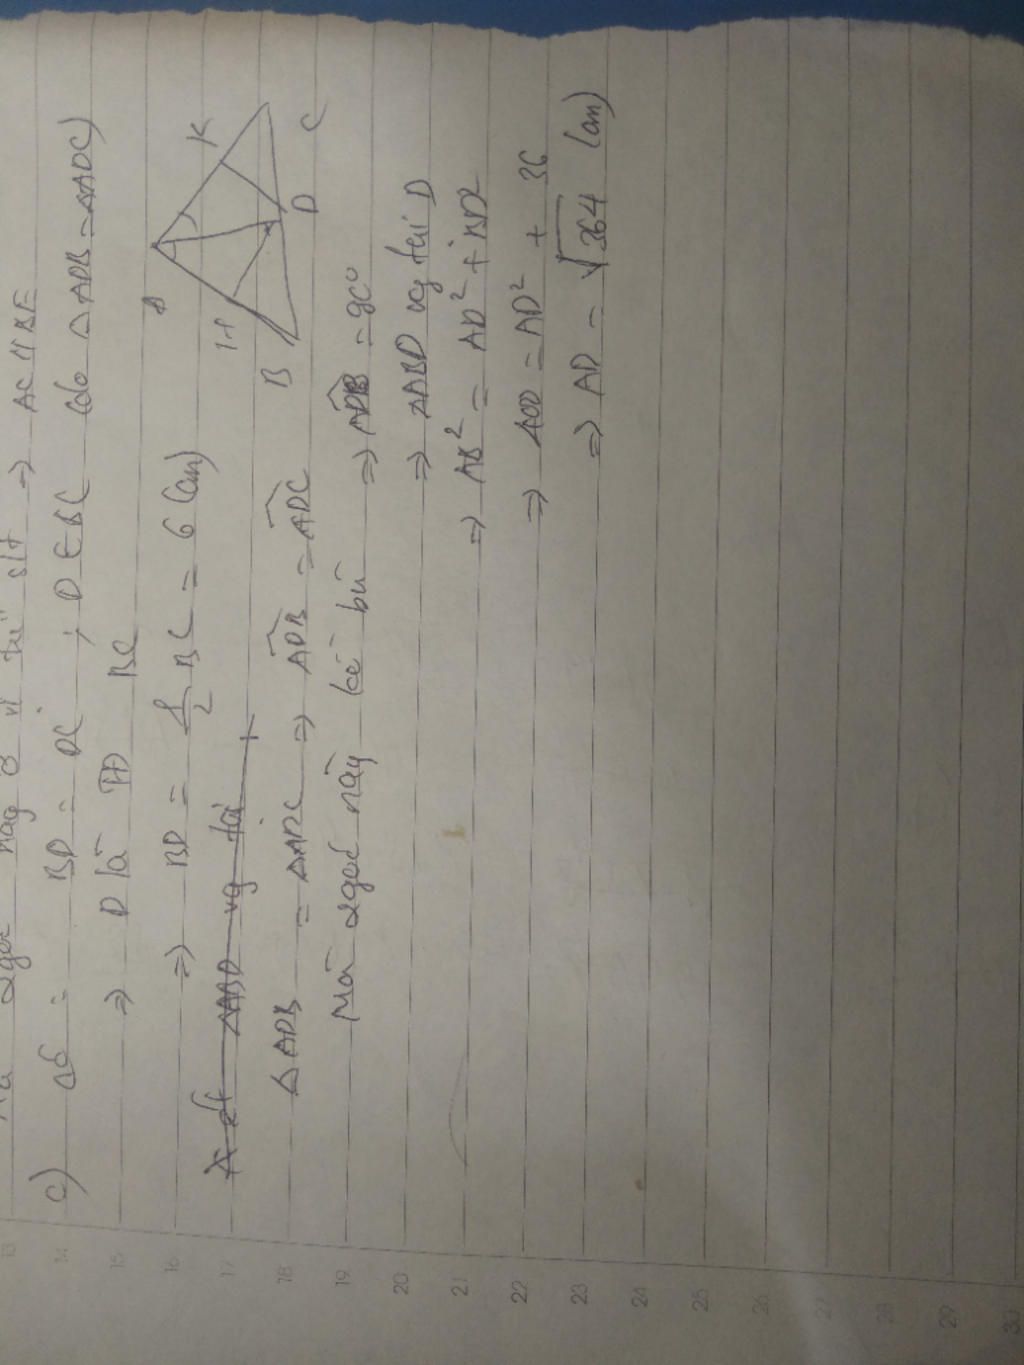 2 góc này ở vị trí slt → AC // BE
c) Có : BD = DC , D ∈ BC (do △ ADB = △ADC)
⇒ D là TĐ BC
⇒ BD = 1/2 BC = 6 (cm)
Xét △ABD vg tại
△ ADB = △ADC ⇒ ADB = ADC
Mà 2 góc này kề bù ⇒ ADB = 90°
⇒ △ABD vg tại D
⇒ AB² = AD² + BD²
⇒ 400 = AD² + 36
⇒ AD = √364 (cm)
A
K
H
B
D
C
13
14
15
16
17
18
19
20
21
22
23
24
25
26
27
28
29
30